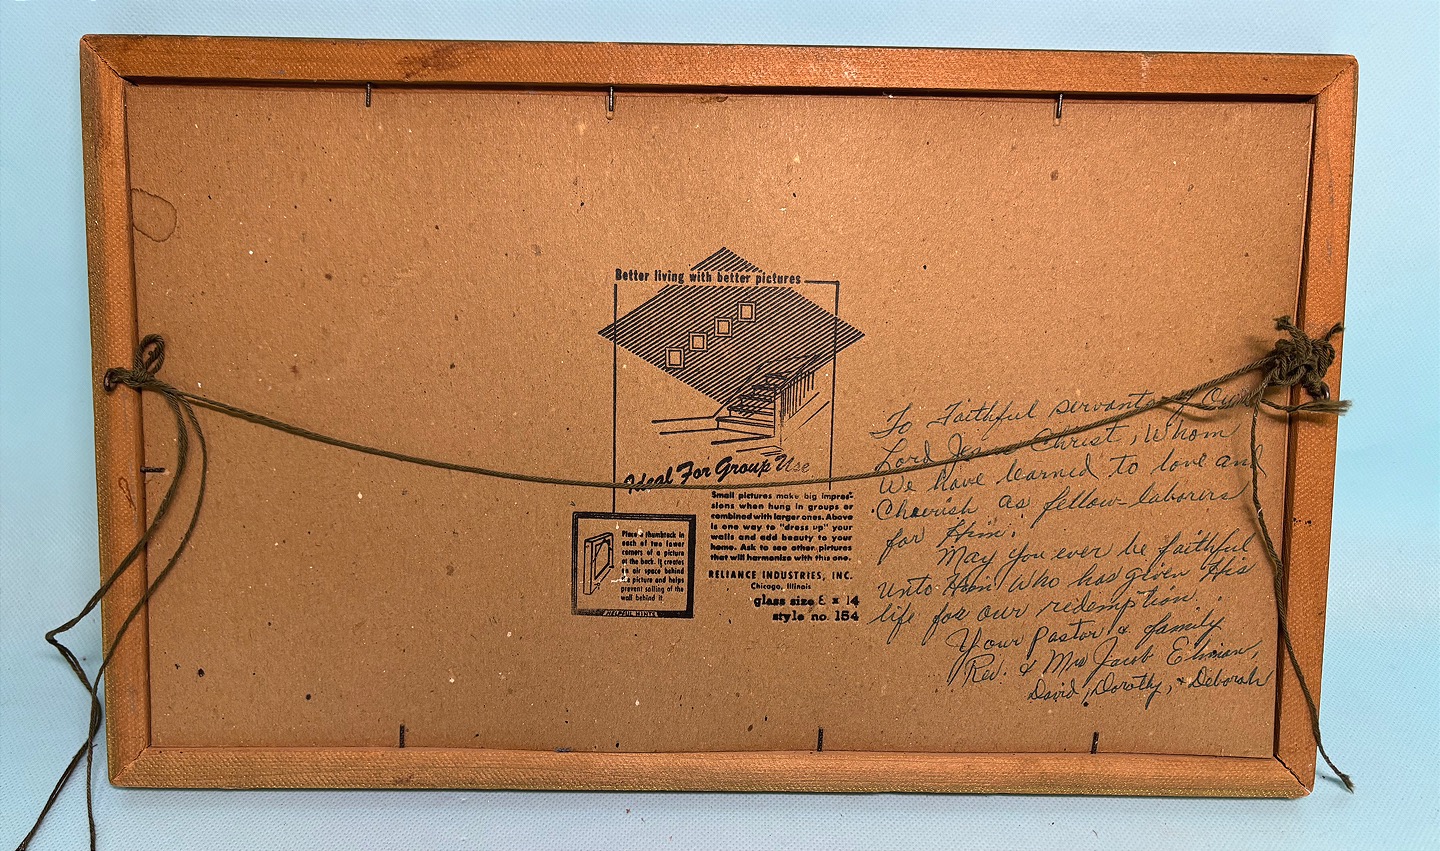 Better living with better pictures
Ideal For Group Use
Small pictures make big impres-
sions when hung in groups or
combined with larger ones. Above
is one way to "dress up" your
walls and add beauty to your
home. Ask to see other pictures
that will harmonize with this one.
RELIANCE INDUSTRIES, INC.
Chicago, Illinois
glass size 8 x 14
style no. 154
Place a thumbtack in
each of two lower
corners of a picture
at the back. It creates
an air space behind
the picture and helps
prevent soiling of the
wall behind it.
HELPFUL HINTS
To Faithful servants of Our
Lord Jesus Christ, Whom
We have learned to love and
Cherish as fellow-laborers
for Him.
May you ever be faithful
unto Him Who has given His
life for our redemption.
Your Pastor & family
Rev. & Mrs Jacob
David, Dorothy, & Deborah